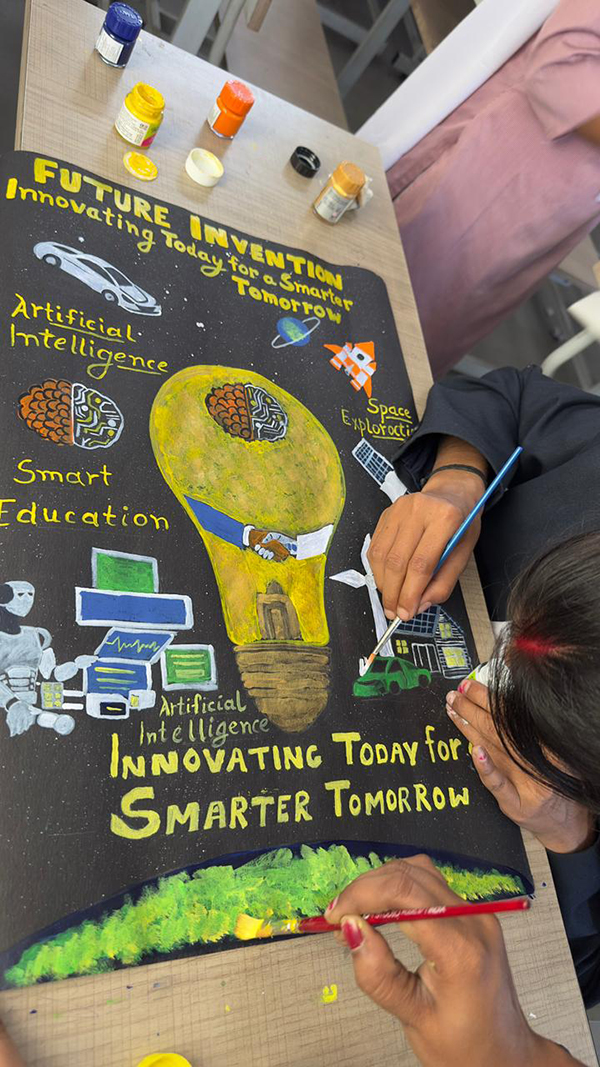 FUTURE INVENTION
Innovating Today for a Smarter
Tomorrow
Artificial
Intelligence
Space
Smart
Education
Artificial
Intelligence
INNOVATING TODAY for
SMARTER TOMORROW